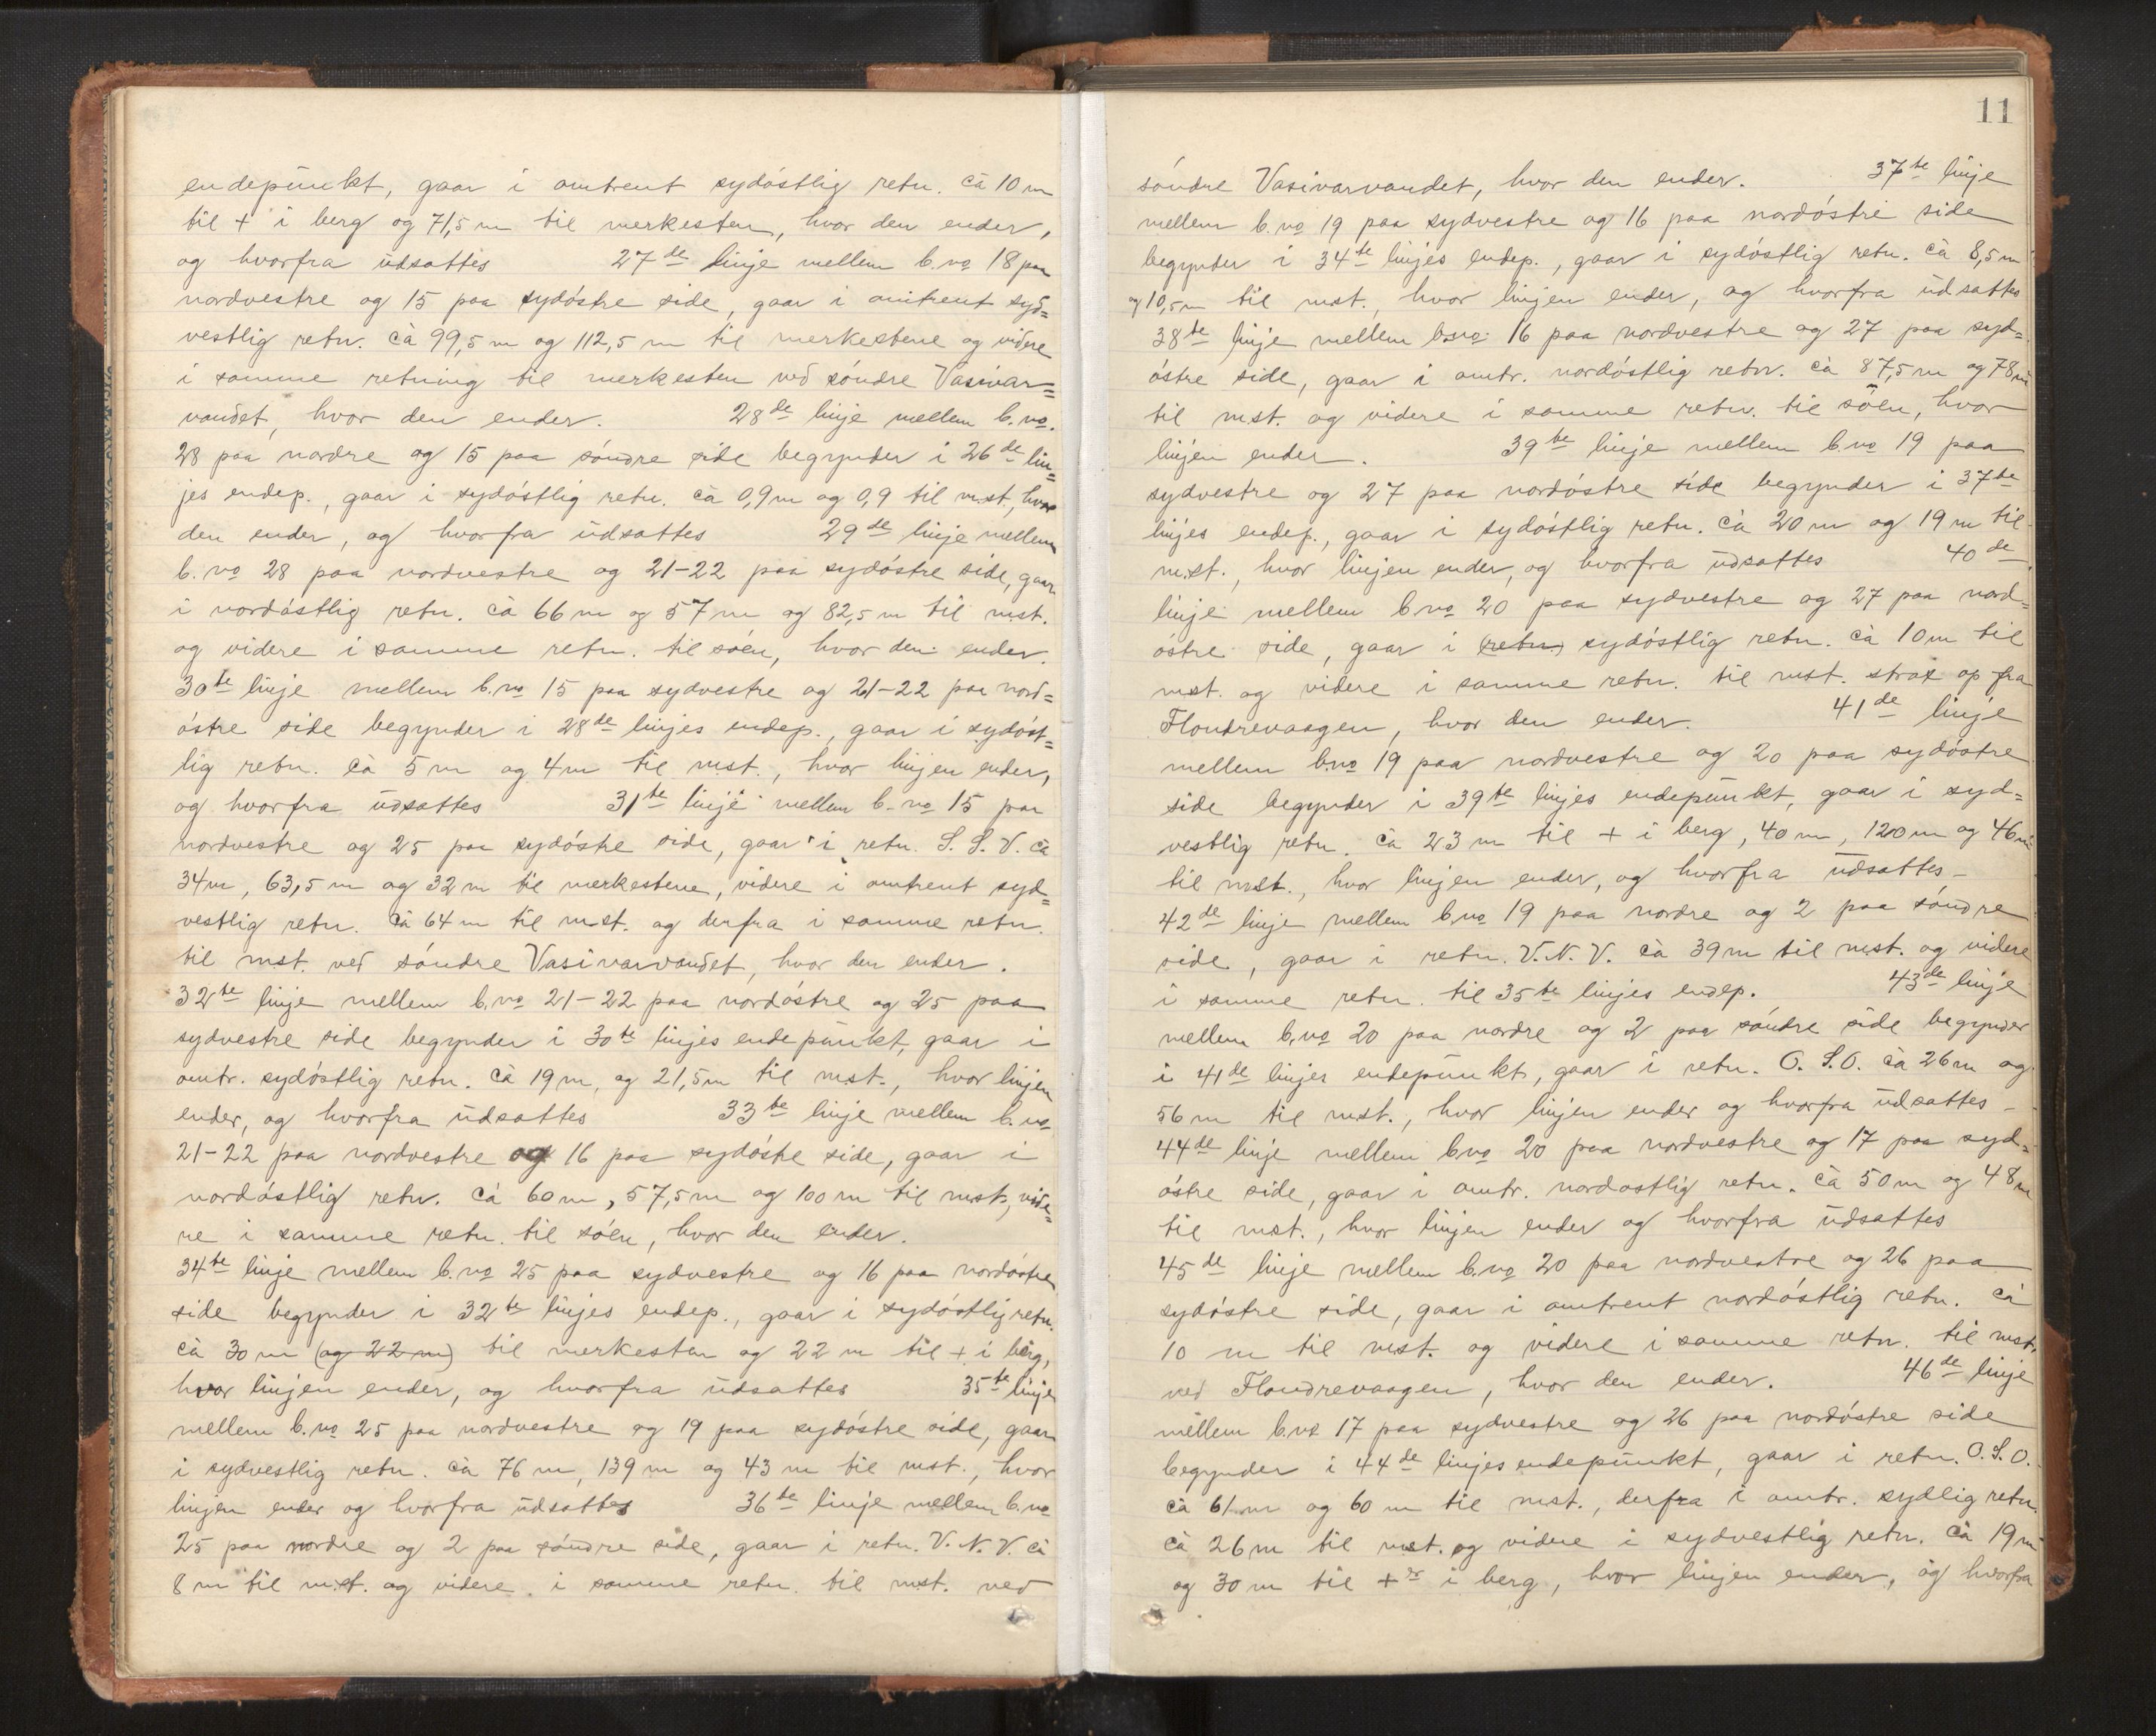 endepunkt, gaar i omtrent sydóstlig retn. cà 10 m
til + i berg og 71,5 m til merkesten, hvor den ender,
og hvorfra udsattes 27de linje mellem b.no 18 paa
nordvestre og 15 paa sydóstre side, gaar i omtrent syd=
vestlig retn. cà 99,5 m og 112,5 m til merkestene og videre
i samme retning til merkesten ved sóndre Vasivar=
vandet, hvor den ender. 28de linje mellem b.no.
28 paa nordre og 15 paa sóndre side begynder i 26de lin=
jes endep., gaar i sydóstlig retn. cà 0,9 m og 0,9 til mst., hvor
den ender, og hvorfra udsattes 29de linje mellem
b.no 28 paa nordvestre og 21-22 paa sydóstre side, gaar
i nordóstlig retn. cà 66 m og 57 m og 82,5 m til mst.
og videre i samme retn. til sóen, hvor den ender.
30te linje mellem b.no 15 paa sydvestre og 21-22 paa nord=
óstre side begynder i 28de linjes endep., gaar i sydóst=
lig retn. cà 5 m og 4 m til mst., hvor linjen ender,
og hvorfra udsattes 31te linje mellem b.no 15 paa
nordvestre og 25 paa sydóstre side, gaar i retn. S.S.V. cà
34 m, 63,5 m og 32 m til merkestene, videre i omtrent syd=
vestlig retn. cà 64 m til mst. og derfra i samme retn.
til mst. ved sóndre Vasivarvandet, hvor den ender.
32te linje mellem b.no 21-22 paa nordóstre og 25 paa
sydvestre side begynder i 30te linjes endepunkt, gaar i
omtr. sydóstlig retn. cà 19 m, og 21,5 m til mst., hvor linjen
ender, og hvorfra udsattes 33te linje mellem b.no
21-22 paa nordvestre og 16 paa sydóstre side, gaar i
nordóstlig retn. cà 60 m, 57,5 m og 100 m til mst., vide=
re i samme retn. til sóen, hvor den ender.
34te linje mellem b.no 25 paa sydvestre og 16 paa nordóstre
side begynder i 32te linjes endep., gaar i sydóstlig retn.
cà 30 m (og 22 m) til merkesten og 22 m til + i berg,
hvor linjen ender, og hvorfra udsattes 35te linje
mellem b.no 25 paa nordvestre og 19 paa sydóstre side, gaar
i sydvestlig retn. cà 76 m, 139 m og 43 m til mst., hvor
linjen ender og hvorfra udsattes 36te linje mellem b.no
25 paa nordre og 2 paa sóndre side, gaar i retn. V.N.V. cà
8 m til mst. og videre i samme retn. til mst. ved
11
sóndre Vasivarvandet, hvor den ender. 37te linje
mellem b.no 19 paa sydvestre og 16 paa nordóstre side
begynder i 34te linjes endep., gaar i sydóstlig retn. cà 8,5 m
og 10,5 m til mst., hvor linjen ender, og hvorfra udsattes
38te linje mellem b.no 16 paa nordvestre og 27 paa syd=
óstre side, gaar i omtr. nordóstlig retn. cà 87,5 m og 78 m
til mst. og videre i samme retn. til sóen, hvor
linjen ender. 39te linje mellem b.no 19 paa
sydvestre og 27 paa nordóstre side begynder i 37te
linjes endep., gaar i sydóstlig retn. cà 20 m og 19 m til
mst., hvor linjen ender, og hvorfra udsattes 40de
linje mellem b.no 20 paa sydvestre og 27 paa nord=
óstre side, gaar i (retn) sydóstlig retn. cà 10 m til
mst. og videre i samme retn. til mst. strax op fra
Flondrevaagen, hvor den ender. 41de linje
mellem b.no 19 paa nordvestre og 20 paa sydóstre
side begynder i 39te linjes endepunkt, gaar i syd=
vestlig retn. cà 23 m til + i berg, 40 m, 120 m og 46 m
til mst., hvor linjen ender, og hvorfra udsattes -
42de linje mellem b.no 19 paa nordre og 2 paa sóndre
side, gaar i retn. V.N.V. cà 39 m til mst. og videre
i samme retn. til 35te linjes endep. 43de linje
mellem b.no 20 paa nordre og 2 paa sóndre side begynder
i 41de linjes endepunkt, gaar i retn. O.S.O. cà 26 m og
56 m til mst., hvor linjen ender og hvorfra udsattes -
44de linje mellem b.no 20 paa nordvestre og 17 paa syd=
óstre side, gaar i omtr. nordostlig retn. cà 50 m og 48 m
til mst., hvor linjen ender og hvorfra udsattes
45de linje mellem b.no 20 paa nordvestre og 26 paa
sydóstre side, gaar i omtrent nordóstlig retn. cà
10 m til mst. og videre i samme retn. til mst.
ved Flondrevaagen, hvor den ender. 46de linje
mellem b.no 17 paa sydvestre og 26 paa nordóstre side
begynder i 44de linjes endepunkt, gaar i retn. O.S.O.
cà 61 m og 60 m til mst., derfra i omtr. sydlig retn.
cà 26 m til mst. og videre i sydvestlig retn. cà 19 m
og 30 m til +er i berg, hvor linjen ender, og hvorfra